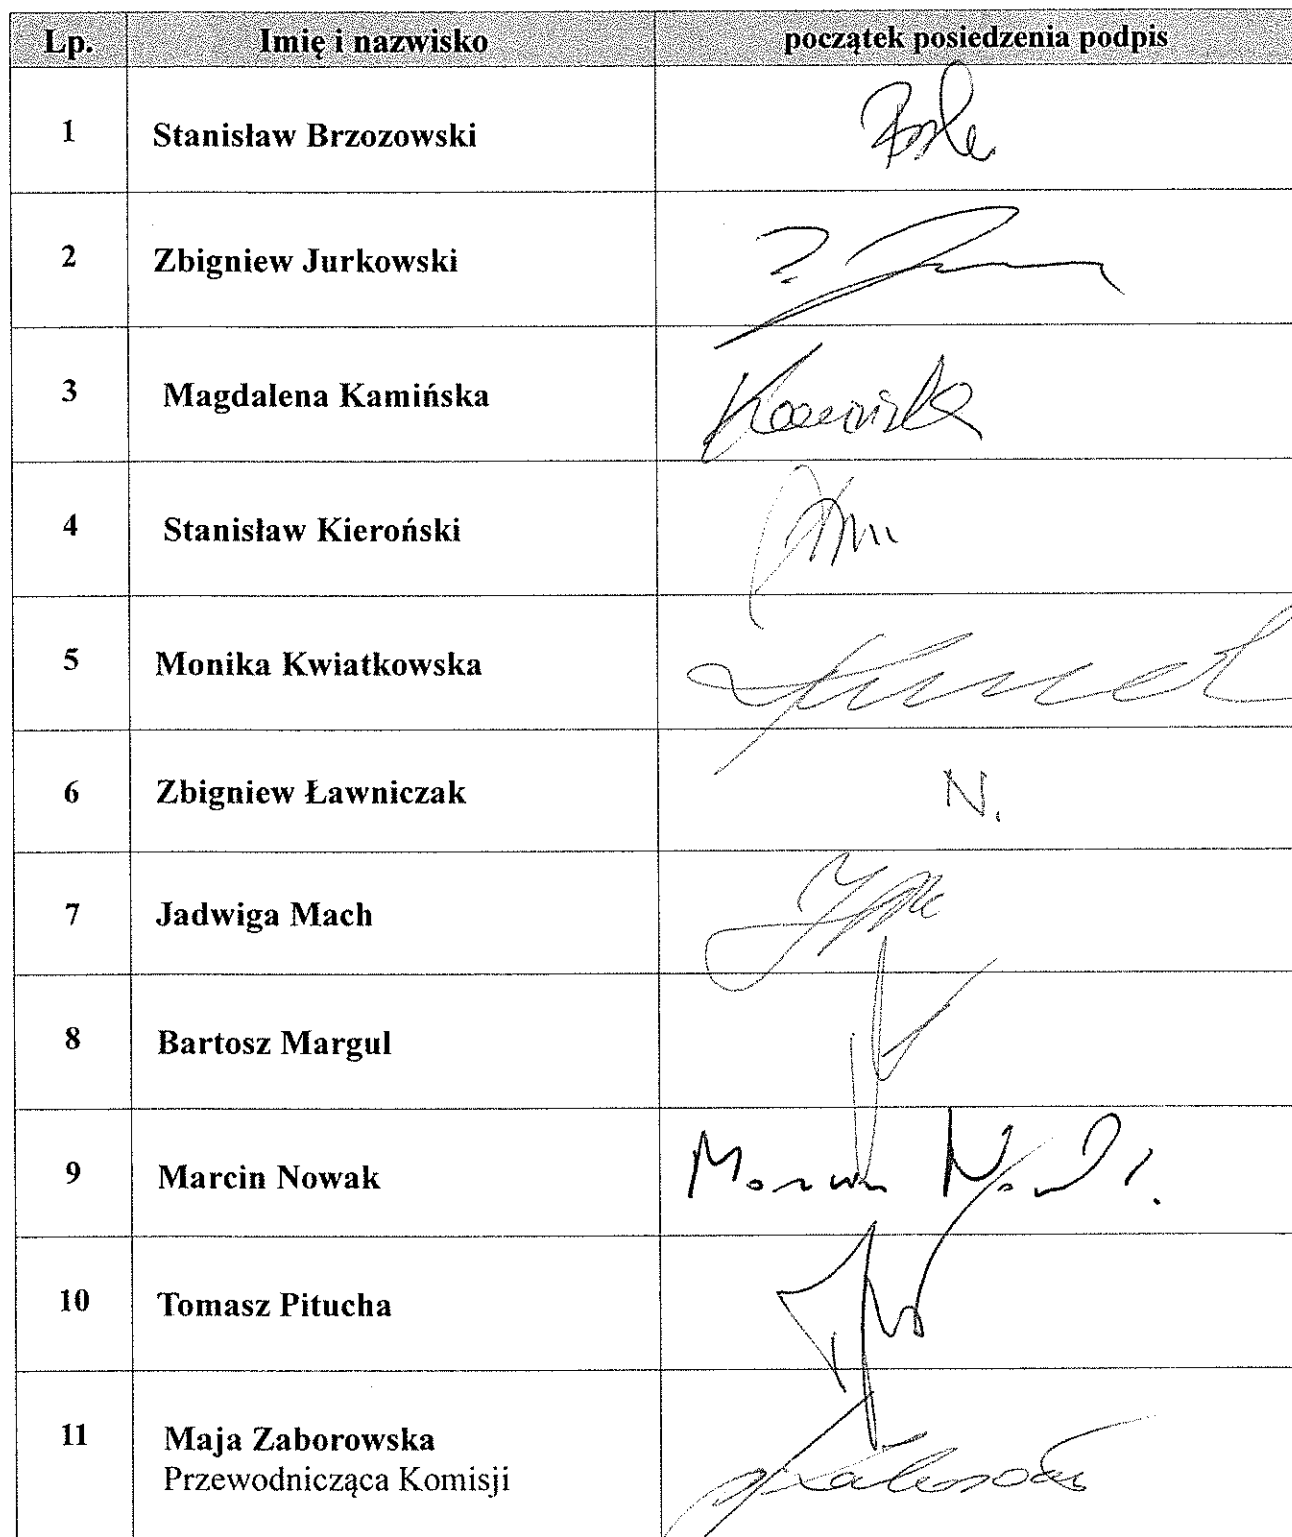 Lp. Imię i nazwisko początek posiedzenia podpis
1 Stanisław Brzozowski
2 Zbigniew Jurkowski
3 Magdalena Kamińska
4 Stanisław Kieroński
5 Monika Kwiatkowska
6 Zbigniew Ławniczak N.
7 Jadwiga Mach
8 Bartosz Margul
9 Marcin Nowak
10 Tomasz Pitucha
11 Maja Zaborowska
Przewodnicząca Komisji